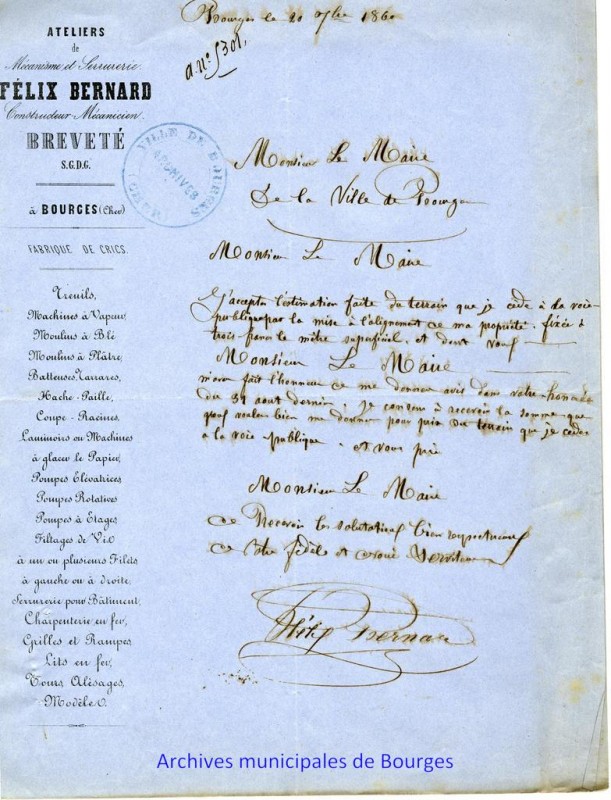 ATELIERS
de
Mécanisme et Serrurerie
FÉLIX BERNARD
Constructeur-Mécanicien
BREVETÉ
S.G.D.G.
à BOURGES (Cher)
FABRIQUE DE CRICS.
Treuils,
Machines à Vapeur,
Moulins à Blé
Moulins à Plâtre,
Batteuses, Tarrares,
Hache-Paille,
Coupe-Racines,
Laminoirs ou Machines
à glacer le Papier,
Pompes Elévatrices
Pompes Rotatives
Pompes à Etages
Filtages de Vis
à un ou plusieurs Filets
à gauche ou à droite,
Serrurerie pour Bâtiment,
Charpenterie en fer,
Grilles et Rampes,
Lits en fer,
Tours, Alésages,
Modèles.
Bourges le 20 7bre 1860
a n° 5301
VILLE DE BOURGES
ARCHIVES
(CHER)
Monsieur Le Maire
De la Ville de Bourges
Monsieur Le Maire
J'accepte l'éstimation faite du terrain que je cède à la voie
publique par la mise à l'alignement de ma propriété fixée à
trois francs le mètre superficiel, et dont vous
Monsieur Le Maire
m'avez fait l'honneur de me donner avis dans votre honorée
du 31 aout dernier. Je consens à recevoir la somme que
vous voulez bien me donner pour prix du terrain que je cède
à la voie publique. et vous prie
Monsieur Le Maire
de Recevoir les salutations bien respectueuses
de votre fidèl et dévoué Serviteur
Félix Bernard
Archives municipales de Bourges